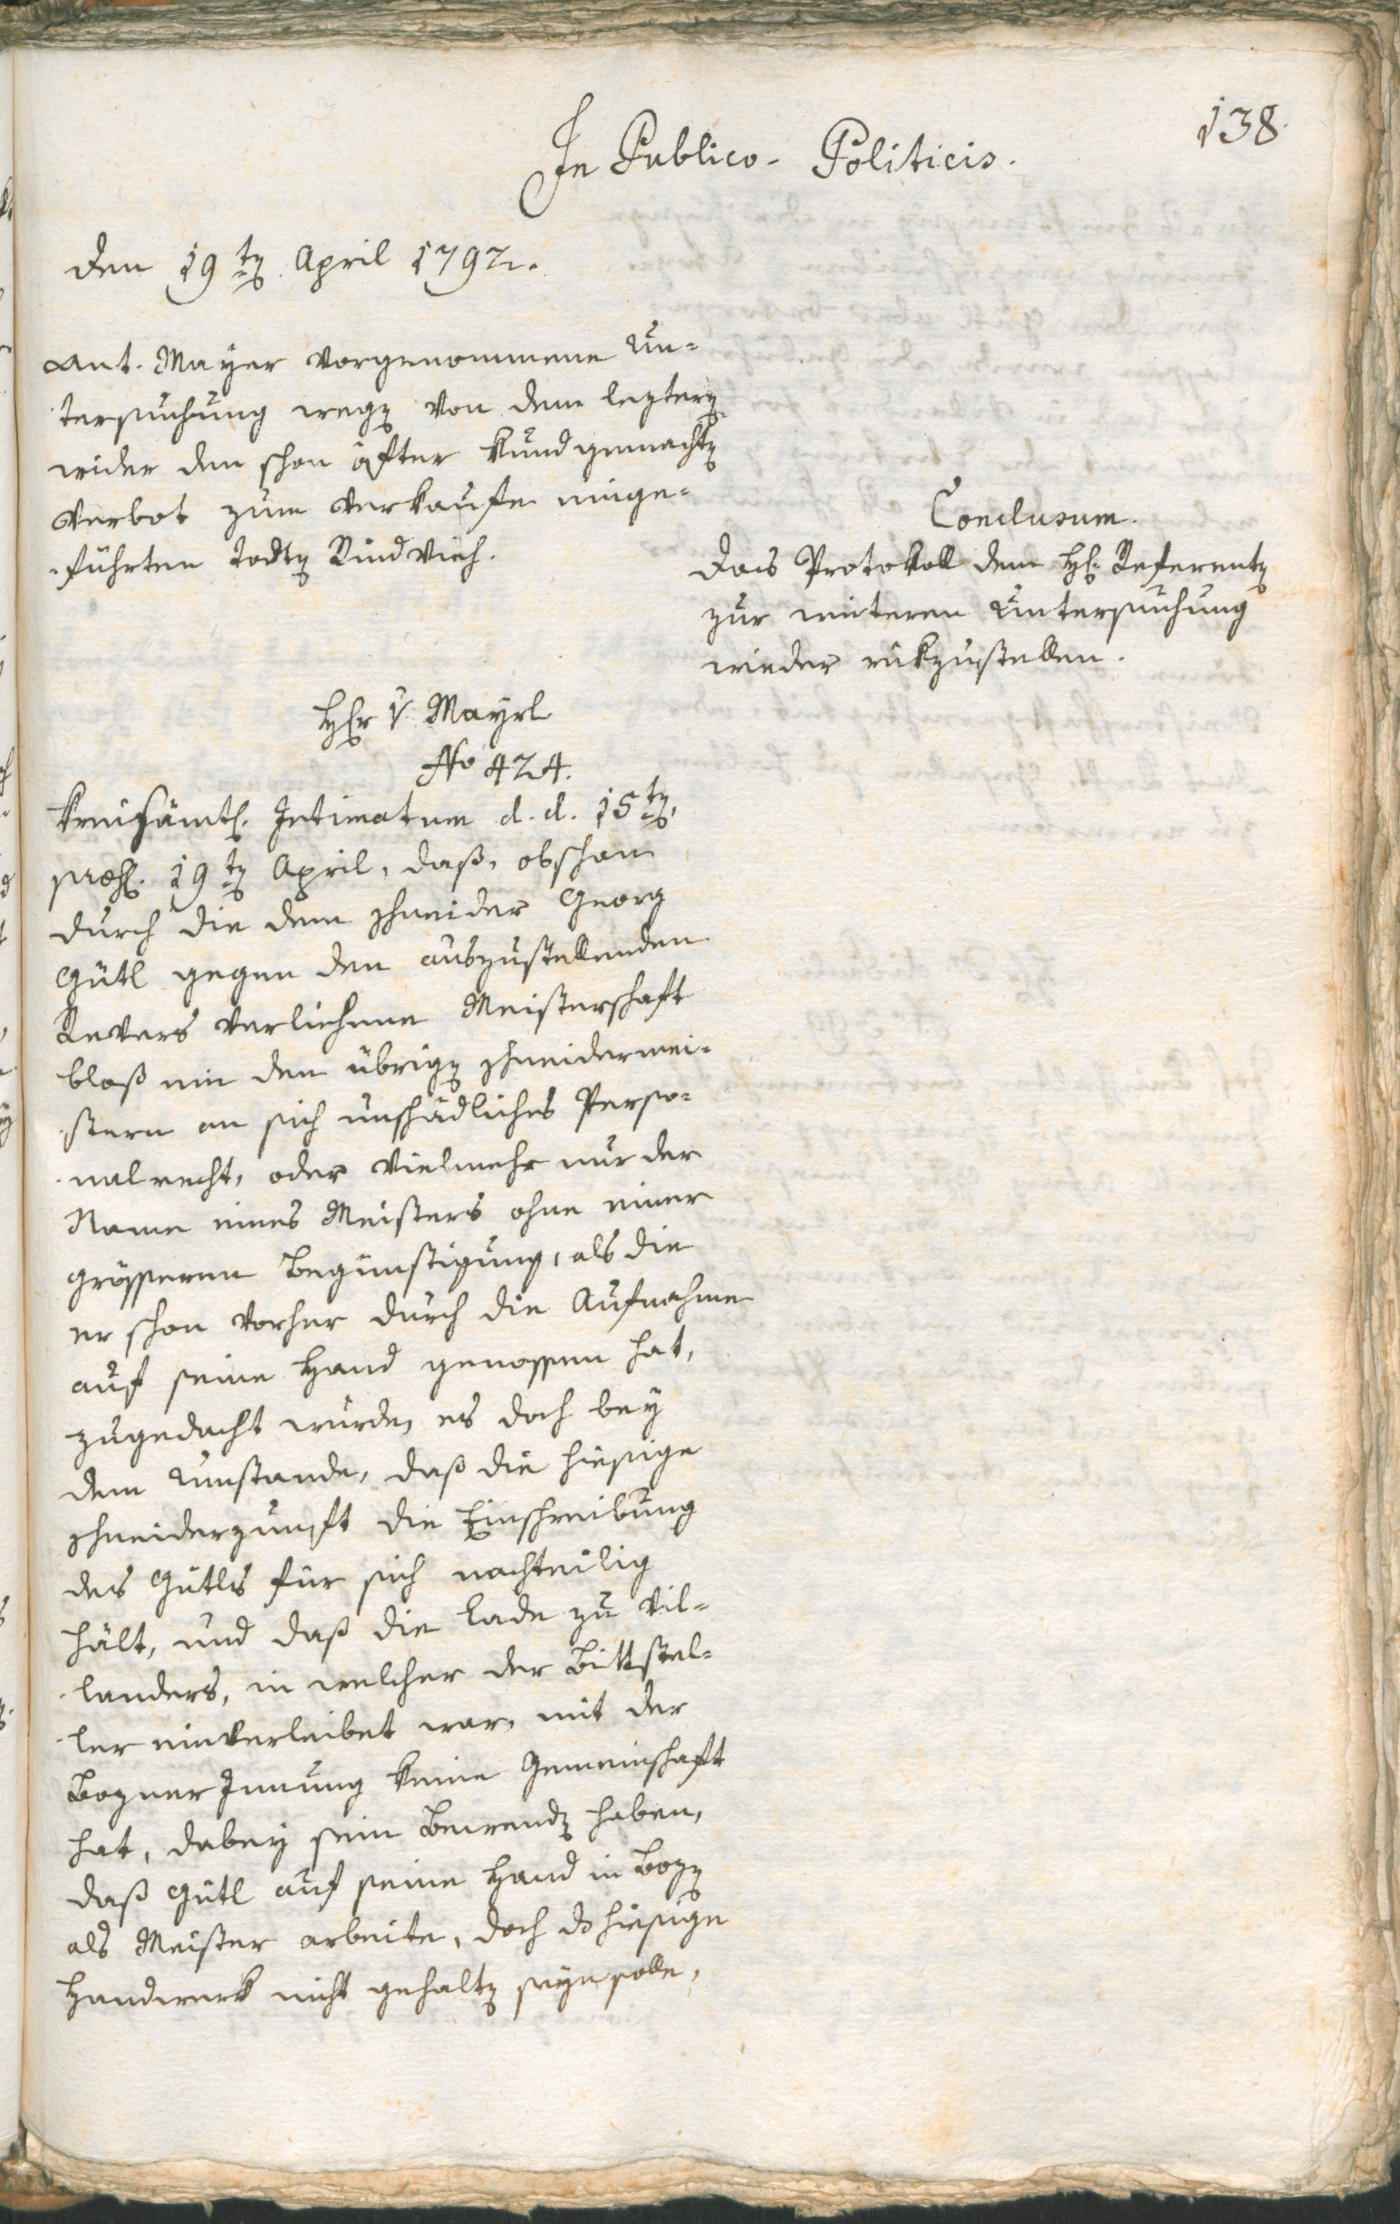 138.
In Publico-Politicis.
den 19ten April 1792.
Ant. Mayer vorgenommene Un=
tersuchung wegen von dem leztern
wider den schon öfter kundgemachten
Verbot zum Verkaufe einge=
führten todten Rindvieh.
Conclusum.
Das Protokoll dem H: Referenten
zur weiteren Untersuchung
wieder rükzustellen.
Herr v. Mayrl
No 424.
Kreisämtl. Intimatum d. d. 15ten,
præs. 19ten April, daß, obschon
durch die dem Schneider Georg
Gütl gegen den auszustellenden
Revers verliehene Meisterschaft
bloß ein den übrigen Schneidermei=
stern an sich unschädliches Perso=
nalrecht, oder vielmehr nur der
Name eines Meisters ohne einer
grösseren Begünstigung, als die
er schon vorher durch die Aufnahme
auf seine Hand genossen hat,
zugedacht wurde, es doch bey
dem Umstande, daß die hiesige
Schneiderzunft die Einschreibung
des Gütls für sich nachteilig
hält, und daß die Lade zu Vil=
landers, in welcher der Bittstel=
ler einverleibet war, mit der
Bozner Innung keine Gemeinschaft
hat, dabey sein Bewenden haben,
daß Gütl auf seine Hand in Bozen
als Meister arbeite, doch ds hiesige
Handwerk nicht gehalten seyn solle,